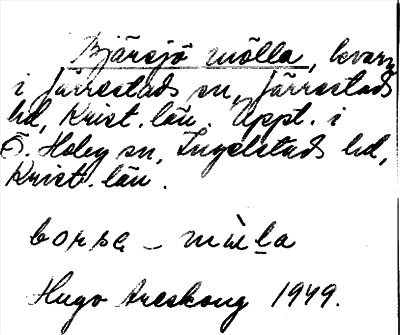 Bjärsjö mölla, kvarn
i Järrestads sn, Järrestads
hd, Krist. län. Uppt. i
Ö. Hoby sn, Ingelstads hd,
Krist. län.
Hugo Areskoug 1949.